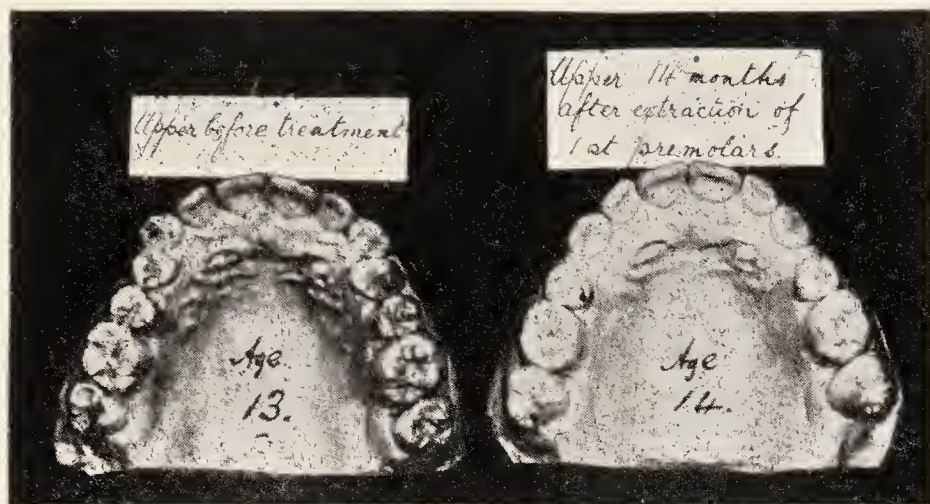 Upper before treatment
Age
13.
Upper 14 months
after extraction of
1st premolars.
Age
14.